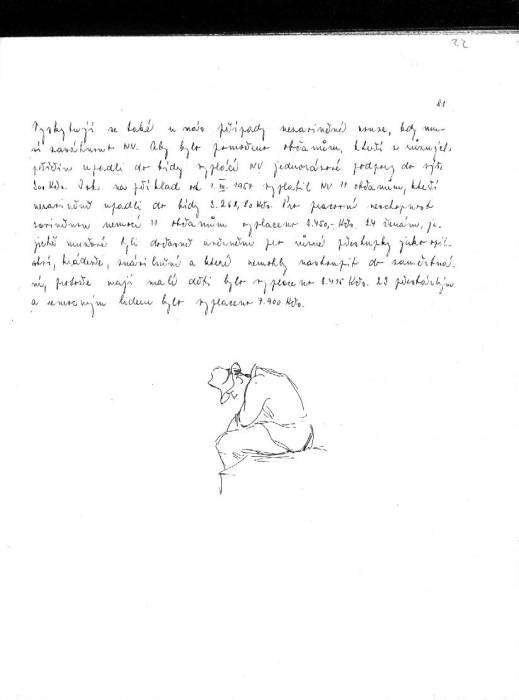 22
81
Vyskytují se také u nás případy nezaviněné nouze, kdy mu-
sí zasáhnout NV. Aby bylo pomoženo občanům, kteří z různých
příčin upadli do bídy vyplácí NV jednorázové podpory do výše
300 Kčs. Tak na příklad od 1. 1950 vyplatil NV 11 občanům, kteří
nezaviněně upadli do bídy 3.268,80 Kčs. Pro pracovní neschopnost
zaviněnou nemocí 11 občanům vyplaceno 8.450,- Kčs. 24 ženám, je-
jichž mužové byli dočasně uvězněni pro různé přestupky jako opil-
ství, krádeže, a které nemohly nastoupit do zaměstná-
ní, protože mají malé děti bylo vyplaceno 8.475 Kčs. 23 přestárlým
a nemocným lidem bylo vyplaceno 7.900 Kčs.